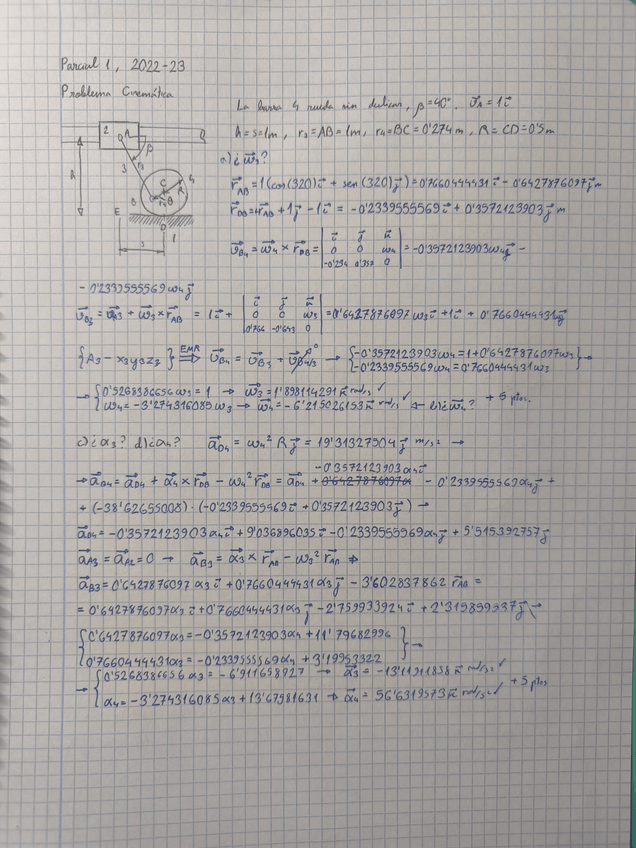 Parcial 1, 2022-23
Problema Cinemática
La barra 4 rueda sin deslizar, β=40°. v⃗A = 1i⃗
h=s=1m, r3=AB=1m, r4=BC=0'274m, R=CD=0'5m
2 A
β
3 r3
C 4
R
B θ
h
E D
s 1
a) ¿ω⃗3?
r⃗AB = 1(cos(320)i⃗ + sen(320)j⃗) = 0'7660444431i⃗ - 0'6427876097j⃗ m
r⃗DB = r⃗AB + 1j⃗ - 1i⃗ = -0'2339555569i⃗ + 0'3572123903j⃗ m
v⃗B4 = ω⃗4 × r⃗DB = | i⃗ j⃗ k⃗ | 0 0 ω4 | -0'234 0'357 0 | = -0'3572123903ω4i⃗ -
- 0'2339555569ω4j⃗
v⃗B3 = v⃗A3 + ω⃗3 × r⃗AB = 1i⃗ + | i⃗ j⃗ k⃗ | 0 0 ω3 | 0'766 -0'643 0 | = 0'6427876097ω3i⃗ + 1i⃗ + 0'7660444431ω3j⃗
{A3 - x3y3z3} EMR ⇒ v⃗B4 = v⃗B3 + v⃗B4/3 0 → { -0'3572123903ω4 = 1 + 0'6427876097ω3
-0'2339555569ω4 = 0'7660444431ω3 } →
→ { 0'5268386656ω3 = 1 → ω⃗3 = 1'898114291k⃗ rad/s ✓
ω4 = -3'274316085ω3 → ω⃗4 = -6'215026153k⃗ rad/s ✓ ← b) ¿ω⃗4? + 5 ptos.
c) ¿α3? d) ¿α4? a⃗D4 = ω4² R j⃗ = 19'31327504j⃗ m/s² →
→ a⃗B4 = a⃗D4 + α⃗4 × r⃗DB - ω4² r⃗DB = a⃗D4 -0'3572123903α4i⃗ - 0'2339555569α4j⃗ +
+ (-38'62655008)·(-0'2339555569i⃗ + 0'3572123903j⃗) →
a⃗B4 = -0'3572123903α4i⃗ + 9'036896035i⃗ - 0'2339555569α4j⃗ + 5'515392757j⃗
a⃗A3 = a⃗A2 = 0 → a⃗B3 = α⃗3 × r⃗AB - ω3² r⃗AB ⇒
a⃗B3 = 0'6427876097α3i⃗ + 0'7660444431α3j⃗ - 3'602837862 r⃗AB =
= 0'6427876097α3i⃗ + 0'7660444431α3j⃗ - 2'759933924i⃗ + 2'315859537j⃗ →
{ 0'6427876097α3 = -0'3572123903α4 + 11'79682996
0'7660444431α3 = -0'2339555569α4 + 3'19953322 } →
→ { 0'5268386656α3 = -6'911658927 → α⃗3 = -13'11911838k⃗ rad/s² ✓
α4 = -3'274316085α3 + 13'67581631 → α⃗4 = 56'6319573k⃗ rad/s² ✓ + 5 ptos